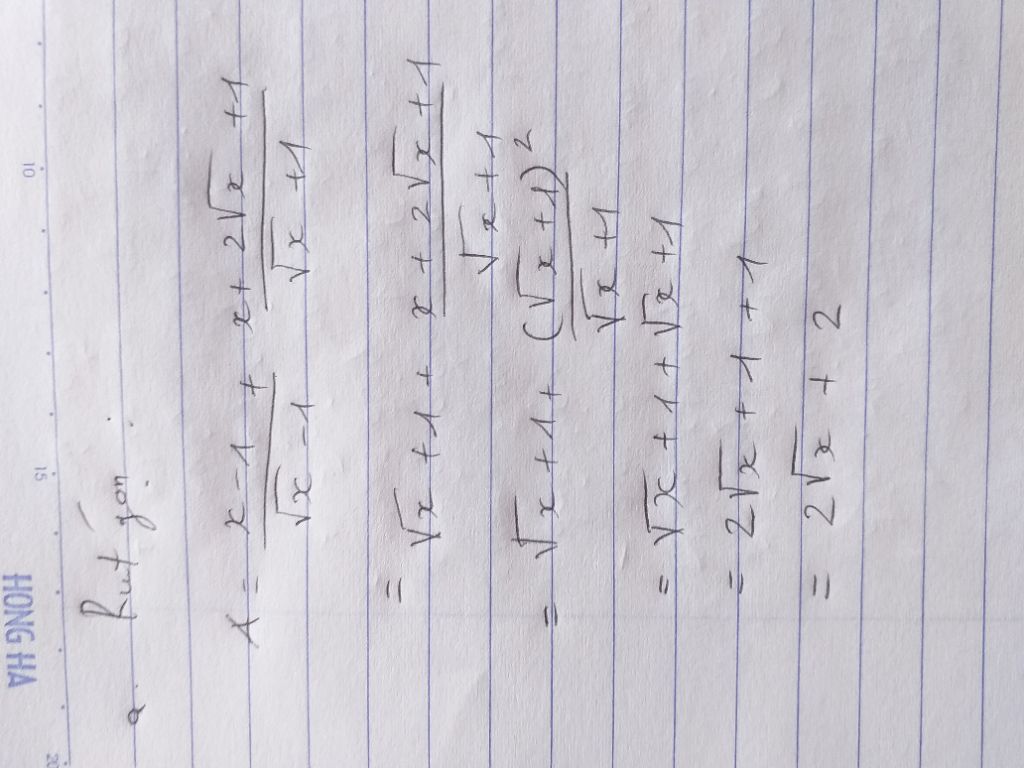 HONG HA
20 15 10
a. Rút gọn:
A = \frac{x-1}{\sqrt{x}-1} + \frac{x+2\sqrt{x}+1}{\sqrt{x}+1}
= \sqrt{x}+1+ \frac{x+2\sqrt{x}+1}{\sqrt{x}+1}
= \sqrt{x}+1+ \frac{(\sqrt{x}+1)^2}{\sqrt{x}+1}
= \sqrt{x}+1+\sqrt{x}+1
= 2\sqrt{x}+1+1
= 2\sqrt{x}+2